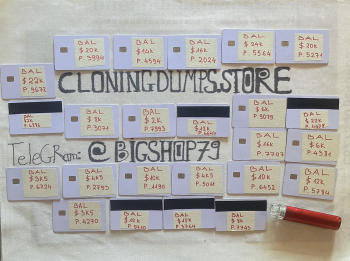 BAL $20K P. 3994
BAL $15K P. 4594
BAL $16K P. 2024
BAL $24K P. 5564
BAL $20K P. 5271
BAL $22K P. 9672
CLONINGDUMPS.STORE
BAL
BAL $2K P. 3071
BAL $2K P. 7993
BAL
BAL $6K P. 9079
BAL $22K
TeleGRam: @BIGSHOP79
BAL P. 7707
BAL $6K P. 4931
BAL $3K5 P. 6724
BAL $4K5 P. 2795
BAL $10K P. 1190
BAL $4K5 P. 9011
BAL $10K P. 6452
BAL $12K P. 5794
BAL $3K5 P. 4270
BAL $12K
BAL P. 3764
BAL P. 7745